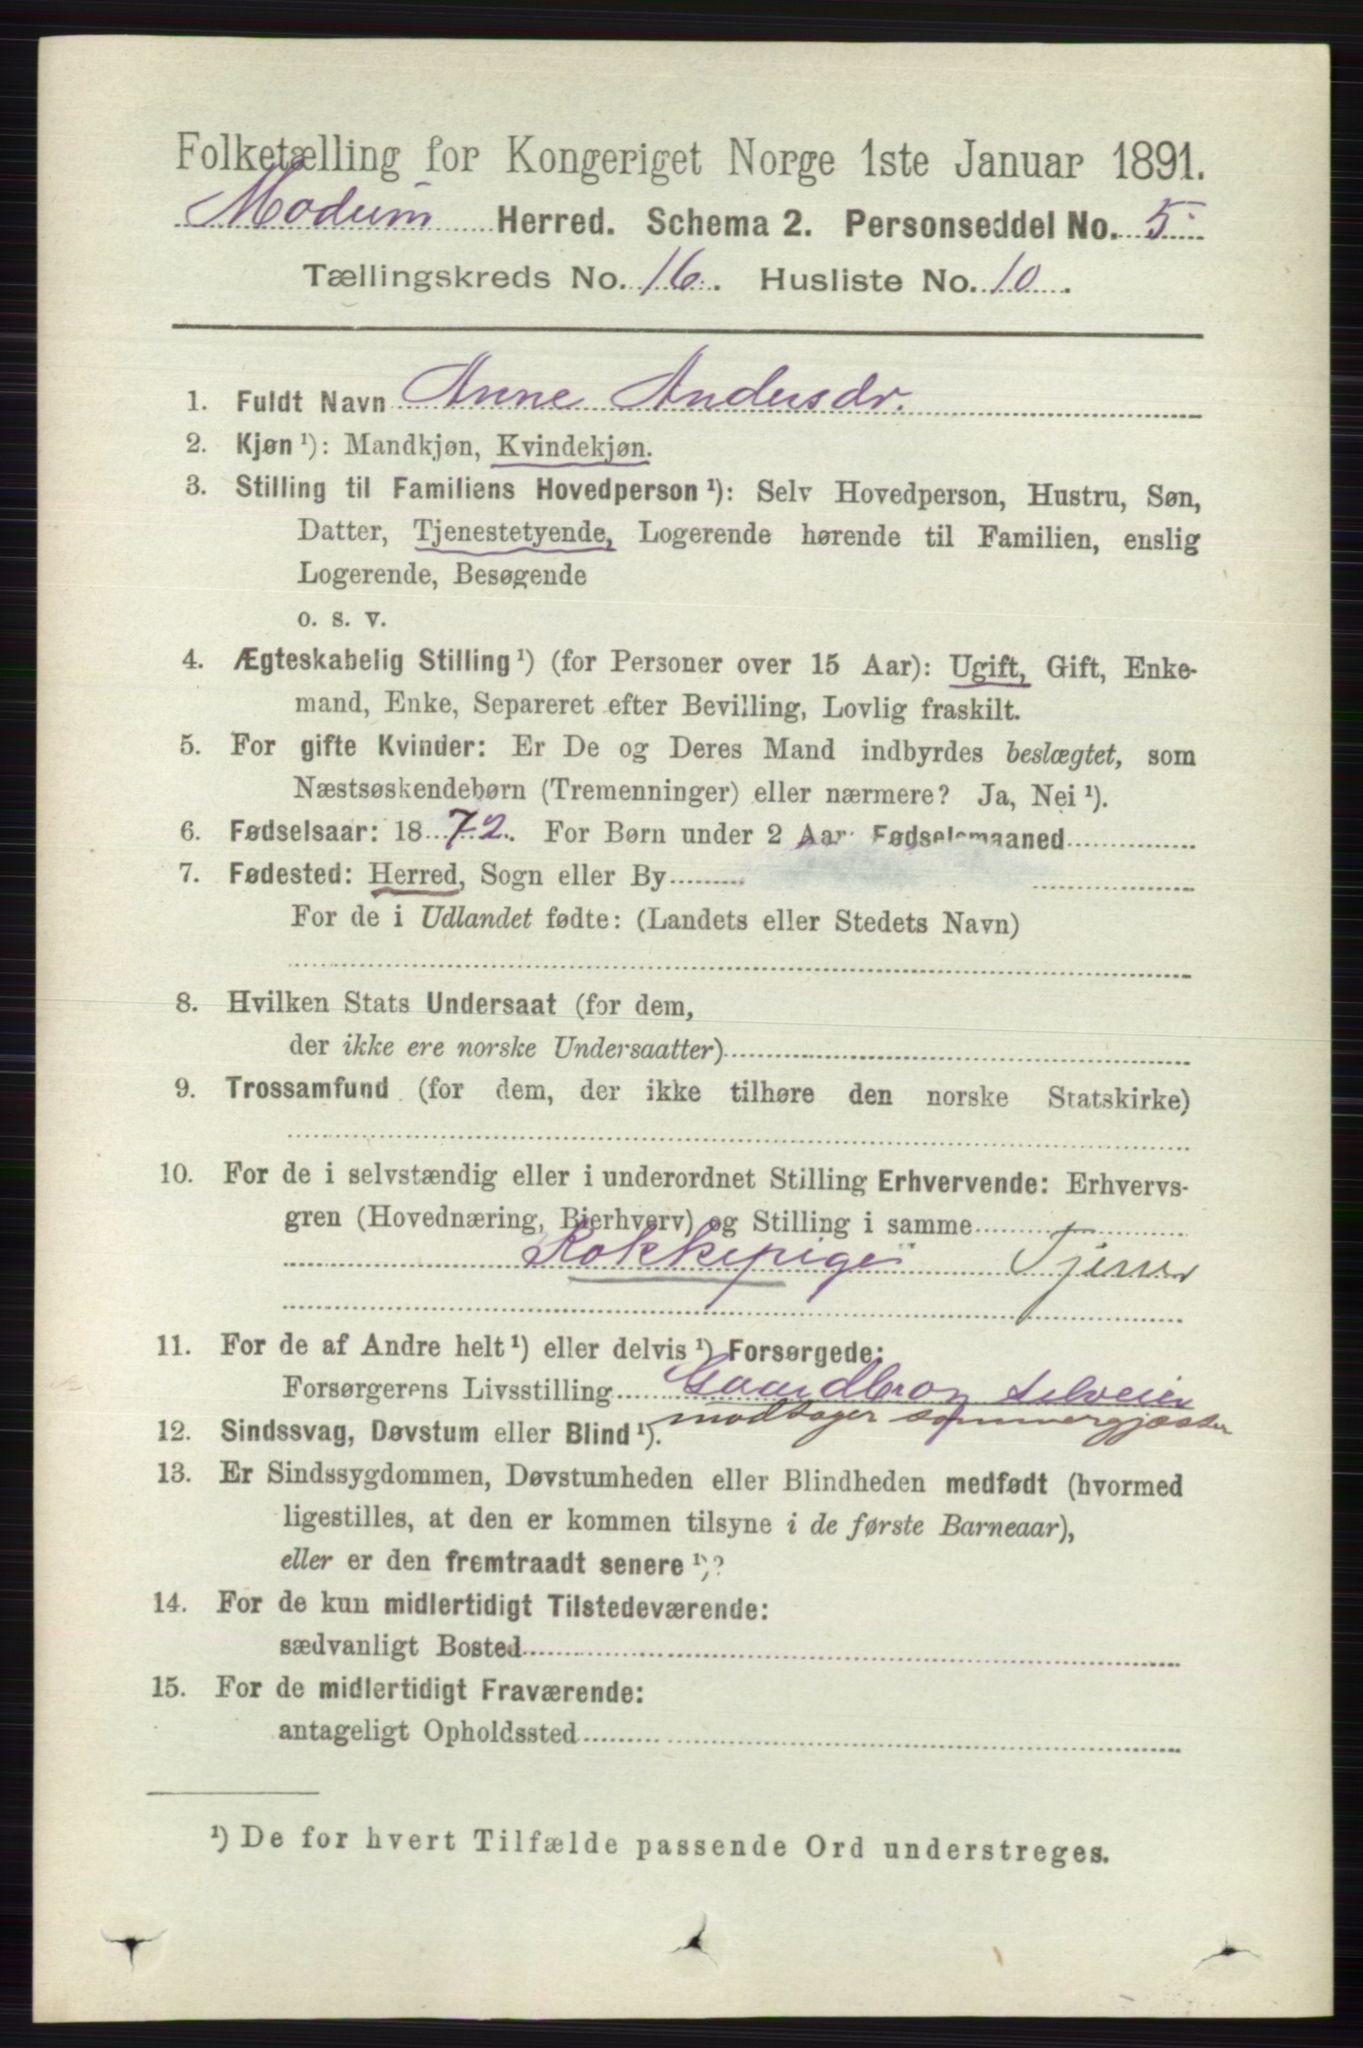 Folketælling for Kongeriget Norge 1ste Januar 1891.
Modum Herred. Schema 2. Personseddel No. 5
Tællingskreds No. 16. Husliste No. 10.
1. Fuldt Navn Anne Andersdr.
2. Kjøn ¹): Mandkjøn, Kvindekjøn.
3. Stilling til Familiens Hovedperson ¹): Selv Hovedperson, Hustru, Søn,
Datter, Tjenestetyende, Logerende hørende til Familien, enslig
Logerende, Besøgende
o. s. v.
4. Ægteskabelig Stilling ¹) (for Personer over 15 Aar): Ugift, Gift, Enke-
mand, Enke, Separeret efter Bevilling, Lovlig fraskilt.
5. For gifte Kvinder: Er De og Deres Mand indbyrdes beslægtet, som
Næstsøskendebørn (Tremenninger) eller nærmere? Ja, Nei ¹).
6. Fødselsaar: 1872. For Børn under 2 Aar: Fødselsmaaned
7. Fødested: Herred, Sogn eller By
For de i Udlandet fødte: (Landets eller Stedets Navn)
8. Hvilken Stats Undersaat (for dem,
der ikke ere norske Undersaatter)
9. Trossamfund (for dem, der ikke tilhøre den norske Statskirke)
10. For de i selvstændig eller i underordnet Stilling Erhvervende: Erhvervs-
gren (Hovednæring, Bierhverv) og Stilling i samme
Kokkepige Tjener
11. For de af Andre helt ¹) eller delvis ¹) Forsørgede:
Forsørgerens Livsstilling Gaardbrog selveier
modtager sommergjæster
12. Sindssvag, Døvstum eller Blind ¹).
13. Er Sindssygdommen, Døvstumheden eller Blindheden medfødt (hvormed
ligestilles, at den er kommen tilsyne i de første Barneaar),
eller er den fremtraadt senere ¹)?
14. For de kun midlertidigt Tilstedeværende:
sædvanligt Bosted
15. For de midlertidigt Fraværende:
antageligt Opholdssted
¹) De for hvert Tilfælde passende Ord understreges.